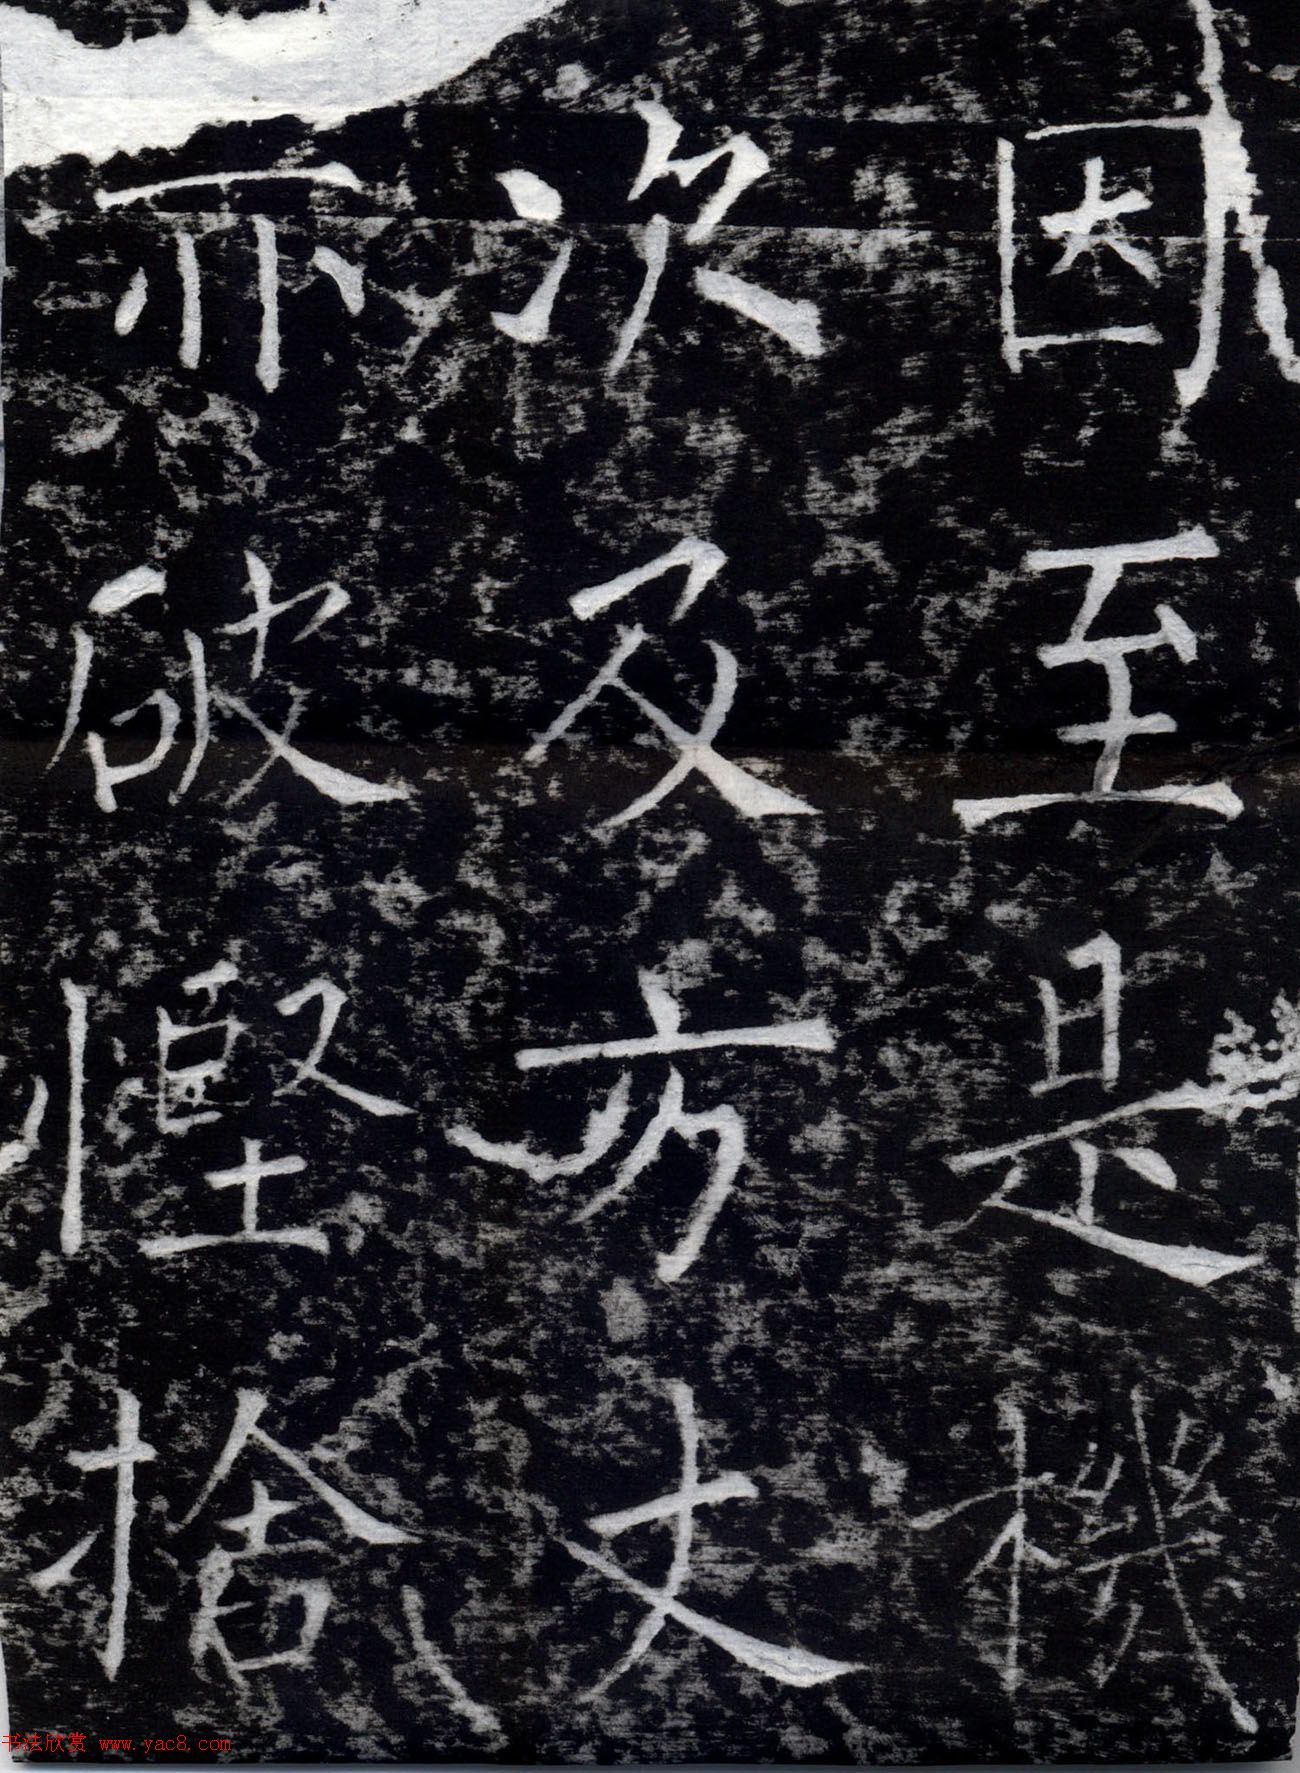 因至是機
次及方丈
亦破慳捨
书法欣赏 www.yac8.com